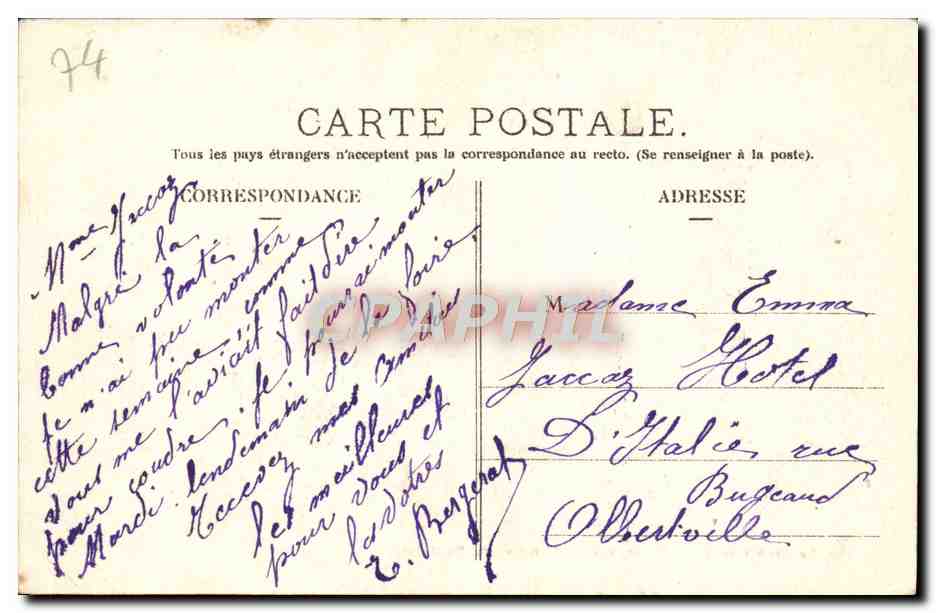 74
CARTE POSTALE.
Tous les pays étrangers n'acceptent pas la correspondance au recto. (Se renseigner à la poste).
CORRESPONDANCE
Mme Jaccoz
Malgré la
bonne volonté
je n'ai pu monter
cette semaine, comme
vous me l'aviait fait dire
pour coudre. je pourrai monter
Mardi lendemain de la foire.
Recevez mes amies
les meilleures
pour vous et
las votres
E. Bergerat
ADRESSE
Madame Emma
Jaccoz Hotel
D'Italie rue
Bugeaud
Albertville
CPAPHIL